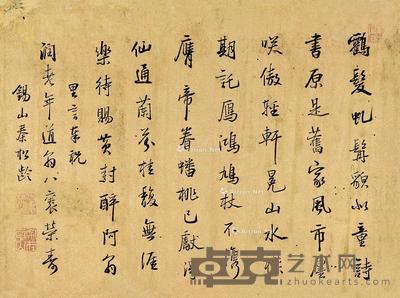 鶴髮虬髯貌似童詩
書原是舊家風市廛
咲傲輕軒冕山水
期託鴈鴻鳩杖不攜
膺帝眷蟠桃已獻
仙通蘭芬桂馥無涯
樂待賜黃封醉阿翁
里言奉祝
潤老年道翁八袠榮壽
錫山秦松齡
艺术网